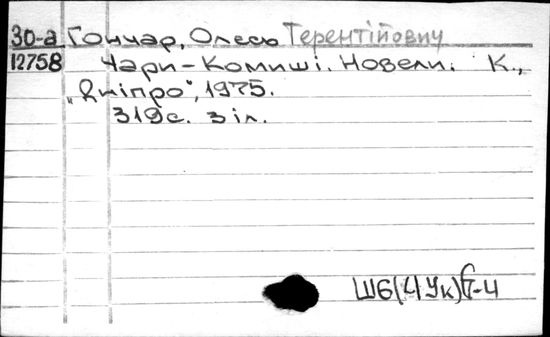 Зо-а Гончар, Олесь Терентійович
12758 Чари-Комиші. Новели. К.,
„Дніпро", 1975.
319с. з іл.
Ш6(4Ук)6-4